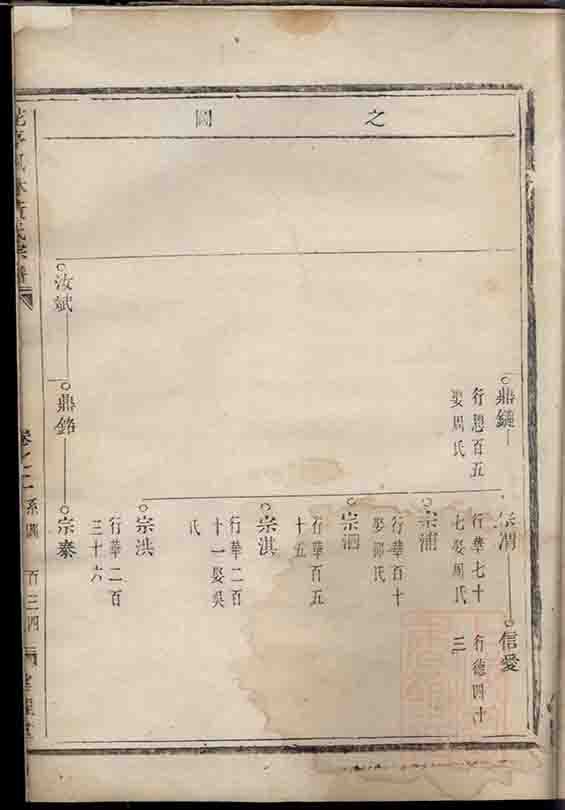 之圖
鼎鏈
行恩百五
娶周氏
宗渭
行華七十
七娶周氏
信愛
行德四十
三
宗浦
行華百十
娶郭氏
宗泗
行華百五
十五
宗淇
行華二百
十一娶吳
氏
宗洪
行華二百
三十六
汝斌
鼎銘
宗泰
氏宗譜
卷之二
系圖
百三四